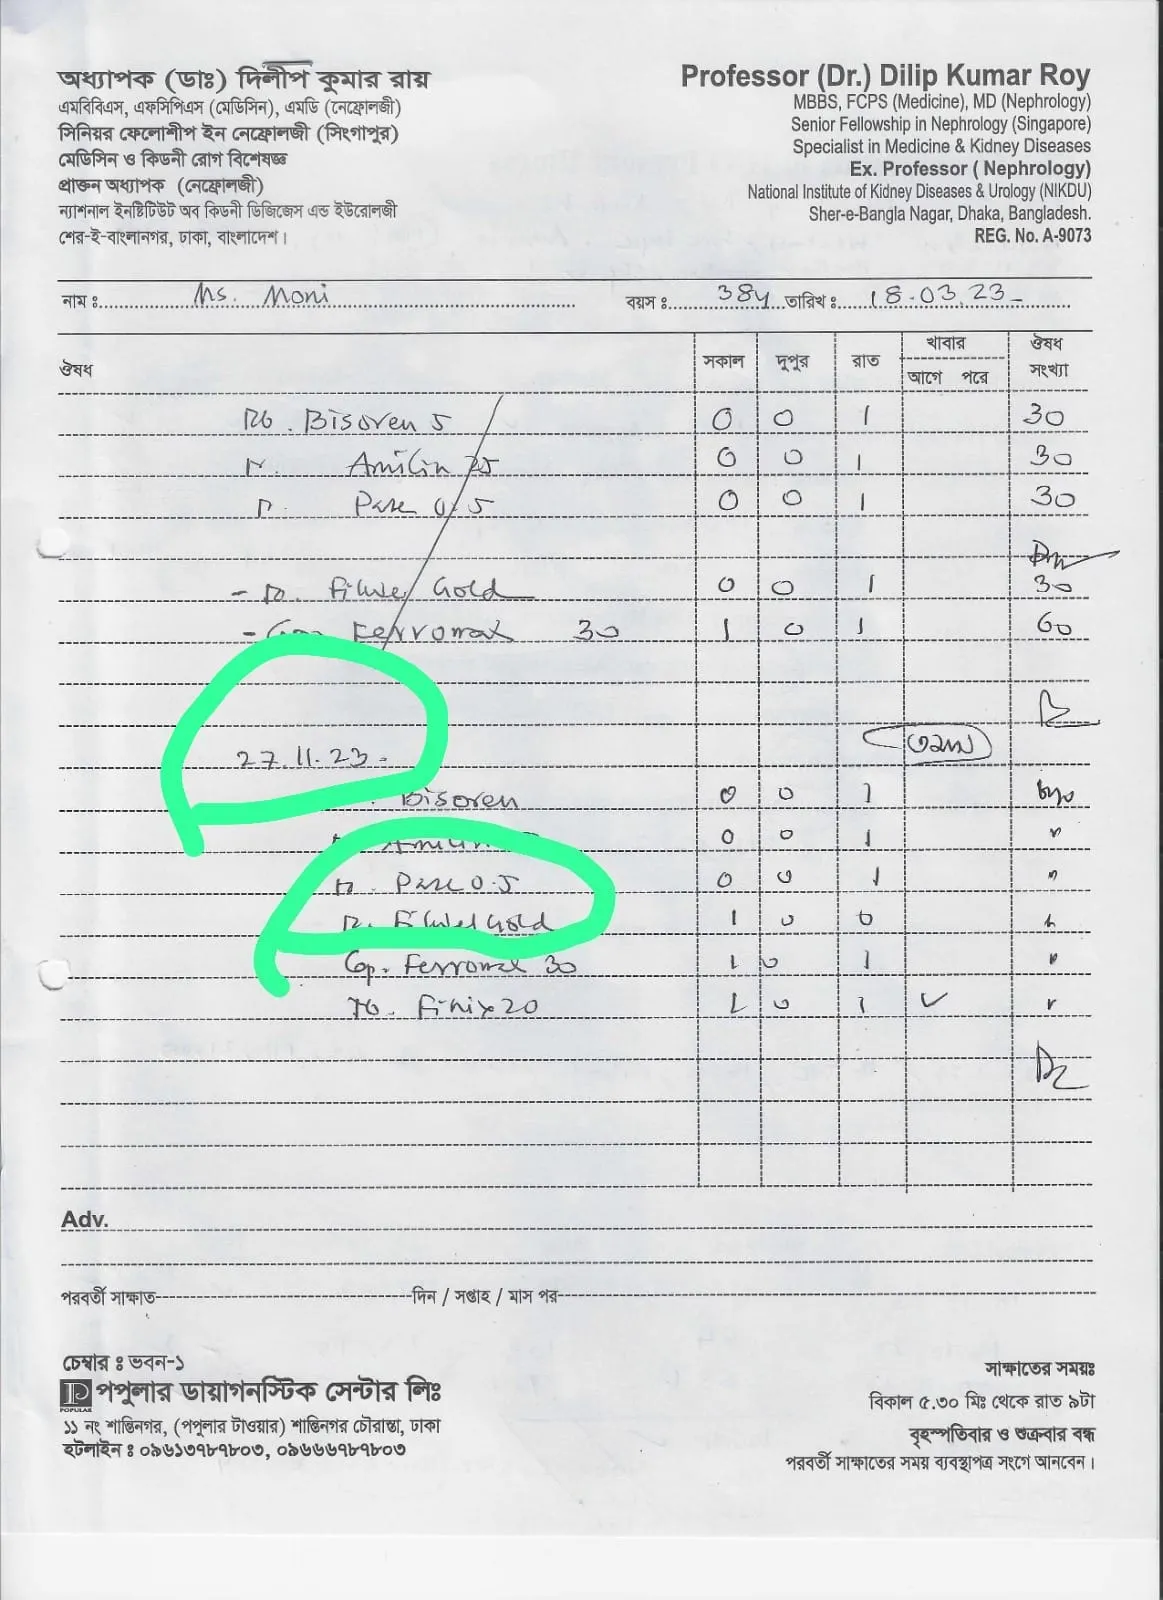 অধ্যাপক (ডাঃ) দিলীপ কুমার রায়
এমবিবিএস, এফসিপিএস (মেডিসিন), এমডি (নেফ্রোলজী)
সিনিয়র ফেলোশীপ ইন নেফ্রোলজী (সিংগাপুর)
মেডিসিন ও কিডনী রোগ বিশেষজ্ঞ
প্রাক্তন অধ্যাপক (নেফ্রোলজী)
ন্যাশনাল ইনষ্টিটিউট অব কিডনী ডিজিজেস এন্ড ইউরোলজী
শের-ই-বাংলানগর, ঢাকা, বাংলাদেশ।
Professor (Dr.) Dilip Kumar Roy
MBBS, FCPS (Medicine), MD (Nephrology)
Senior Fellowship in Nephrology (Singapore)
Specialist in Medicine & Kidney Diseases
Ex. Professor ( Nephrology)
National Institute of Kidney Diseases & Urology (NIKDU)
Sher-e-Bangla Nagar, Dhaka, Bangladesh.
REG. No. A-9073
নাম ঃ Ms. Moni বয়স ঃ 38y তারিখ ঃ 18.03.23
ঔষধ সকাল দুপুর রাত খাবার আগে পরে ঔষধ সংখ্যা
Tb. Bisoren 5 0 0 1 30
Amilin 25 0 0 1 30
Pase 0.5 0 0 1 30
Gold 0 0 1 30
Cap. Ferromax 30 1 0 1 60
27.11.23
Bisoren 0 0 1
Amilin 0 0 1
Pase 0.5 0 0 1
Gold 1 0 0
Cap. Ferromax 30 1 0 1
Tb. Finix 20 1 0 1 ✓
Adv.
পরবর্তী সাক্ষাত দিন / সপ্তাহ / মাস পর
চেম্বার ঃ ভবন-১
পপুলার ডায়াগনস্টিক সেন্টার লিঃ
POPULAR
১১ নং শান্তিনগর, (পপুলার টাওয়ার) শান্তিনগর চৌরাস্তা, ঢাকা
হটলাইন ঃ ০৯৬১৩৭৮৭৮০৩, ০৯৬৬৬৭৮৭৮০৩
সাক্ষাতের সময়ঃ
বিকাল ৫.৩০ মিঃ থেকে রাত ৯টা
বৃহস্পতিবার ও শুক্রবার বন্ধ
পরবর্তী সাক্ষাতের সময় ব্যবস্থাপত্র সংগে আনবেন।